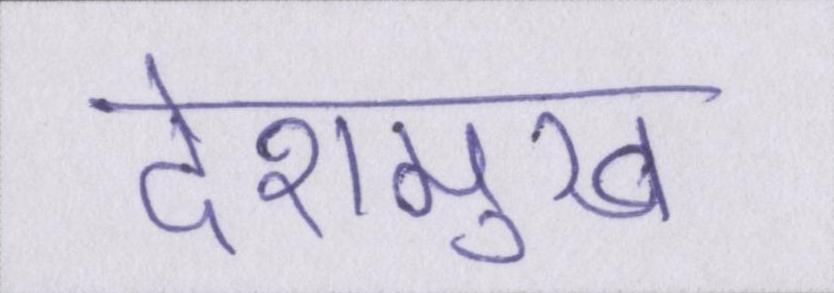 देशमुख